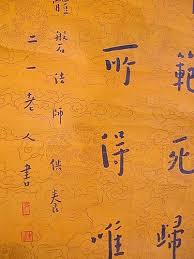 範死歸
所得唯
般若法師供養
二一老人書